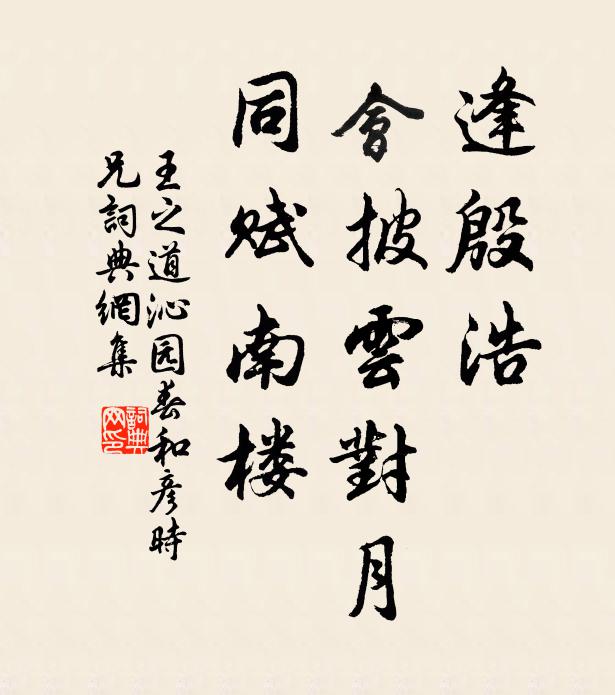 逢殷浩
會披雲對月
同赋南楼
王之道沁园春和彦時
兄詞典網集
詞典网印